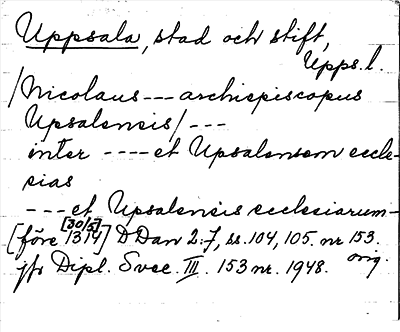 Uppsala, stad och stift,
Upps.l.
/Nicolaus --- archiepiscopus
Upsalensis/ ---
inter ---- et Upsalensem eccle-
sias
--- et Upsalensis ecclesiarum-
[30/5]
[före 1314] DDan 2:7, ss. 104, 105. nr 153.
orig.
jfr Dipl. Svec. III. 153 nr. 1948.